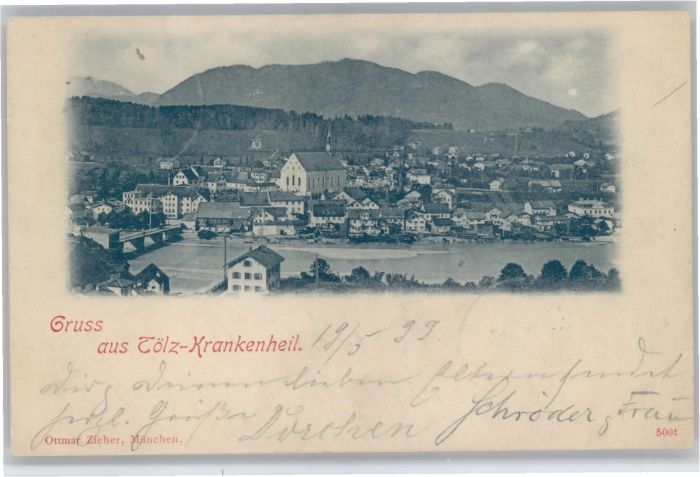 Gruss
aus Tölz-Krankenheil.
19/5 99
Dir, Deinen lieben Eltern sendet
herzl. Grüße Dorchen Schröder, Frau
Ottmar Zieher, München.
5001